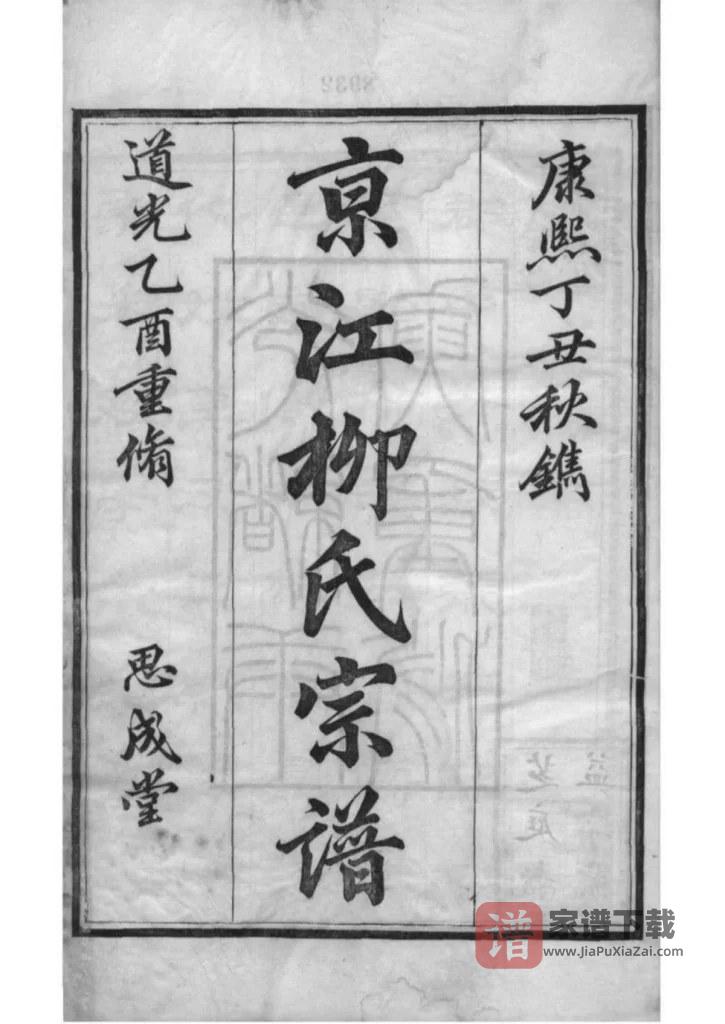 康熙丁丑秋鐫
京江柳氏宗譜
道光乙酉重脩
思成堂
谱
家谱下载
www.JiaPuXiaZai.com